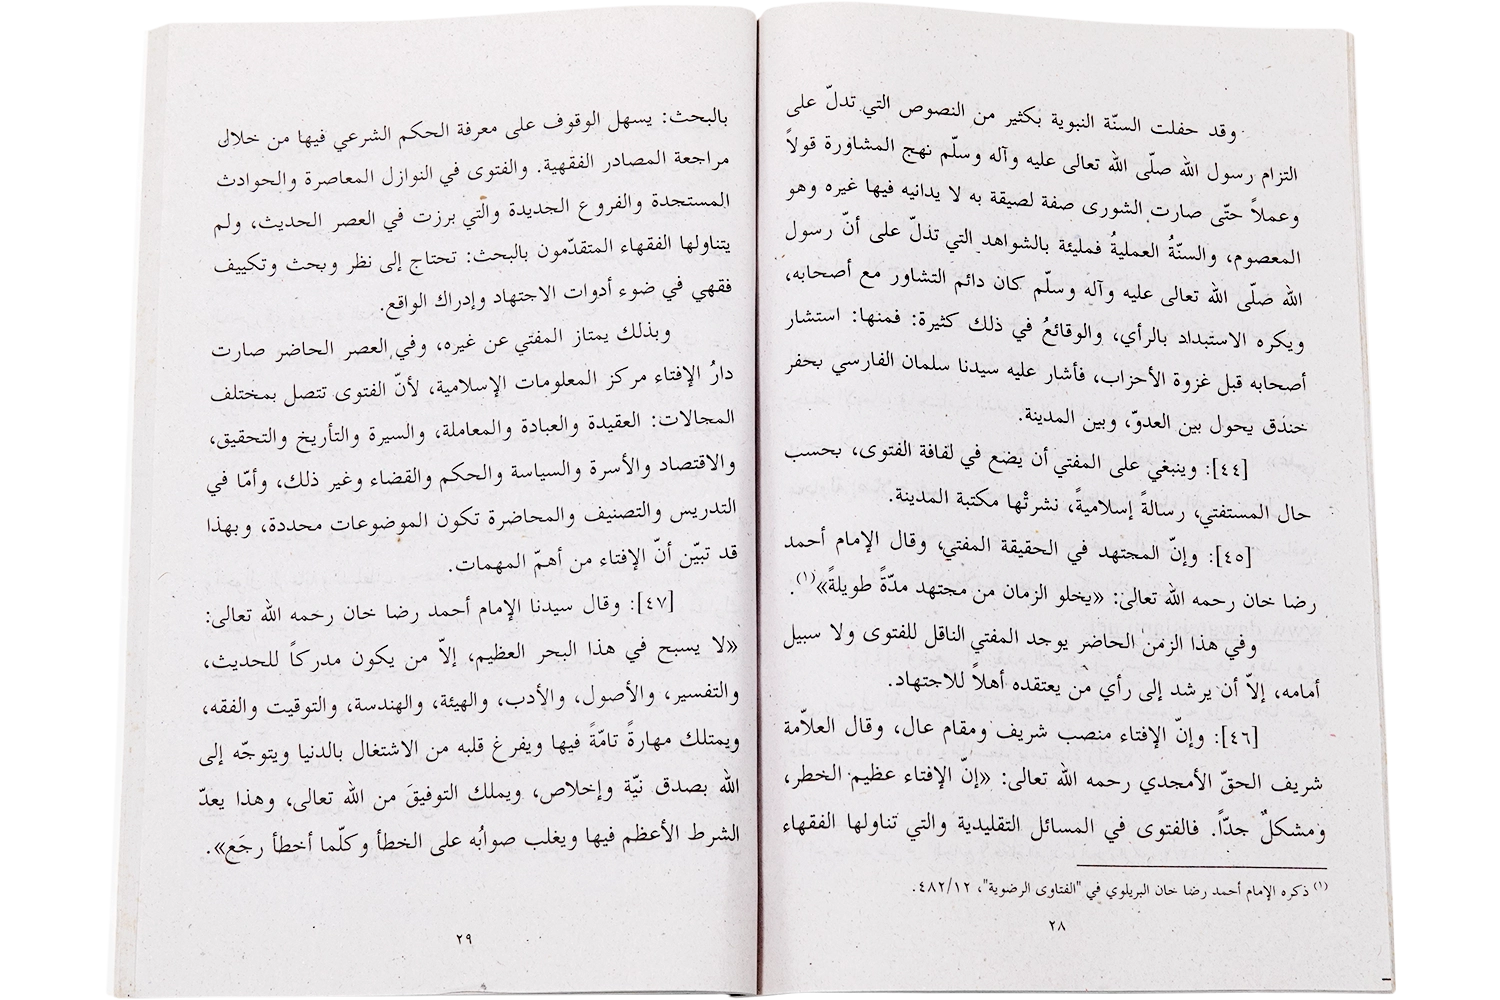 وقد حفلت السنّة النبوية بكثير من النصوص التي تدلّ على
التزام رسول الله صلّى الله تعالى عليه وآله وسلّم نهج المشاورة قولاً
وعملاً حتّى صارت الشورى صفة لصيقة به لا يدانيه فيها غيره وهو
المعصوم، والسنّةُ العمليةُ فمليئة بالشواهد التي تدلّ على أنّ رسول
الله صلّى الله تعالى عليه وآله وسلّم كان دائم التشاور مع أصحابه،
ويكره الاستبداد بالرأي، والوقائعُ في ذلك كثيرة: فمنها: استشار
أصحابه قبل غزوة الأحزاب، فأشار عليه سيدنا سلمان الفارسي بحفر
خندق يحول بين العدوّ، وبين المدينة.
[٤٤]: وينبغي على المفتي أن يضع في لفافة الفتوى، بحسب
حال المستفتي، رسالةً إسلاميةً، نشرتْها مكتبة المدينة.
[٤٥]: وإنّ المجتهد في الحقيقة المفتي، وقال الإمام أحمد
رضا خان رحمه الله تعالى: «يخلو الزمان من مجتهد مدّةً طويلةً»(١).
وفي هذا الزمن الحاضر يوجد المفتي الناقل للفتوى ولا سبيل
أمامه، إلاّ أن يرشد إلى رأي من يعتقده أهلاً للاجتهاد.
[٤٦]: وإنّ الإفتاء منصب شريف ومقام عال، وقال العلاّمة
شريف الحقّ الأمجدي رحمه الله تعالى: «إنّ الإفتاء عظيم الخطر،
ومشكلٌ جدّاً. فالفتوى في المسائل التقليدية والتي تناولها الفقهاء
(١) ذكره الإمام أحمد رضا خان البريلوي في "الفتاوى الرضوية"، ٤٨٢/١٢.
٢٨
بالبحث: يسهل الوقوف على معرفة الحكم الشرعي فيها من خلال
مراجعة المصادر الفقهية. والفتوى في النوازل المعاصرة والحوادث
المستجدة والفروع الجديدة والتي برزت في العصر الحديث، ولم
يتناولها الفقهاء المتقدّمون بالبحث: تحتاج إلى نظر وبحث وتكييف
فقهي في ضوء أدوات الاجتهاد وإدراك الواقع.
وبذلك يمتاز المفتي عن غيره، وفي العصر الحاضر صارت
دارُ الإفتاء مركز المعلومات الإسلامية، لأنّ الفتوى تتصل بمختلف
المجالات: العقيدة والعبادة والمعاملة، والسيرة والتأريخ والتحقيق،
والاقتصاد والأسرة والسياسة والحكم والقضاء وغير ذلك، وأمّا في
التدريس والتصنيف والمحاضرة تكون الموضوعات محددة، وبهذا
قد تبيّن أنّ الإفتاء من أهمّ المهمات.
[٤٧]: وقال سيدنا الإمام أحمد رضا خان رحمه الله تعالى:
«لا يسبح في هذا البحر العظيم، إلاّ من يكون مدركاً للحديث،
والتفسير، والأصول، والأدب، والهيئة، والهندسة، والتوقيت والفقه،
ويمتلك مهارةً تامّةً فيها ويفرغ قلبه من الاشتغال بالدنيا ويتوجّه إلى
الله بصدق نيّة وإخلاص، ويملك التوفيقَ من الله تعالى، وهذا يعدّ
الشرط الأعظم فيها ويغلب صوابُه على الخطأ وكلّما أخطأ رجَع».
٢٩